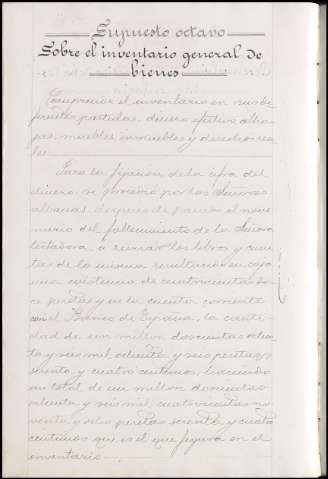 Supuesto octavo
Sobre el inventario general de
bienes
Comprende el inventario en sus di-
ferentes partidas, dinero efectivo, alha-
jas, muebles, inmuebles y derechos rea-
les
Para la fijacion de la cifra del
dinero se procedió por los Señores
albaceas, despues de pasado el nove-
nario del fallecimiento de la Señora
testadora, a revisar los libros y cuen-
tas de la misma resultando en caja
una existencia de cuatrocientas do-
ce pesetas y en la cuenta corriente
con el Banco de España, la canti-
dad de un millon doscientas ochen-
ta y seis mil ochenta y seis pesetas
sesenta y cuatro centimos, haciendo
un total de un millon doscientas
ochenta y seis mil cuatrocientas no-
venta y ocho pesetas sesenta y cuatro
centimos que es el que figura en el
inventario